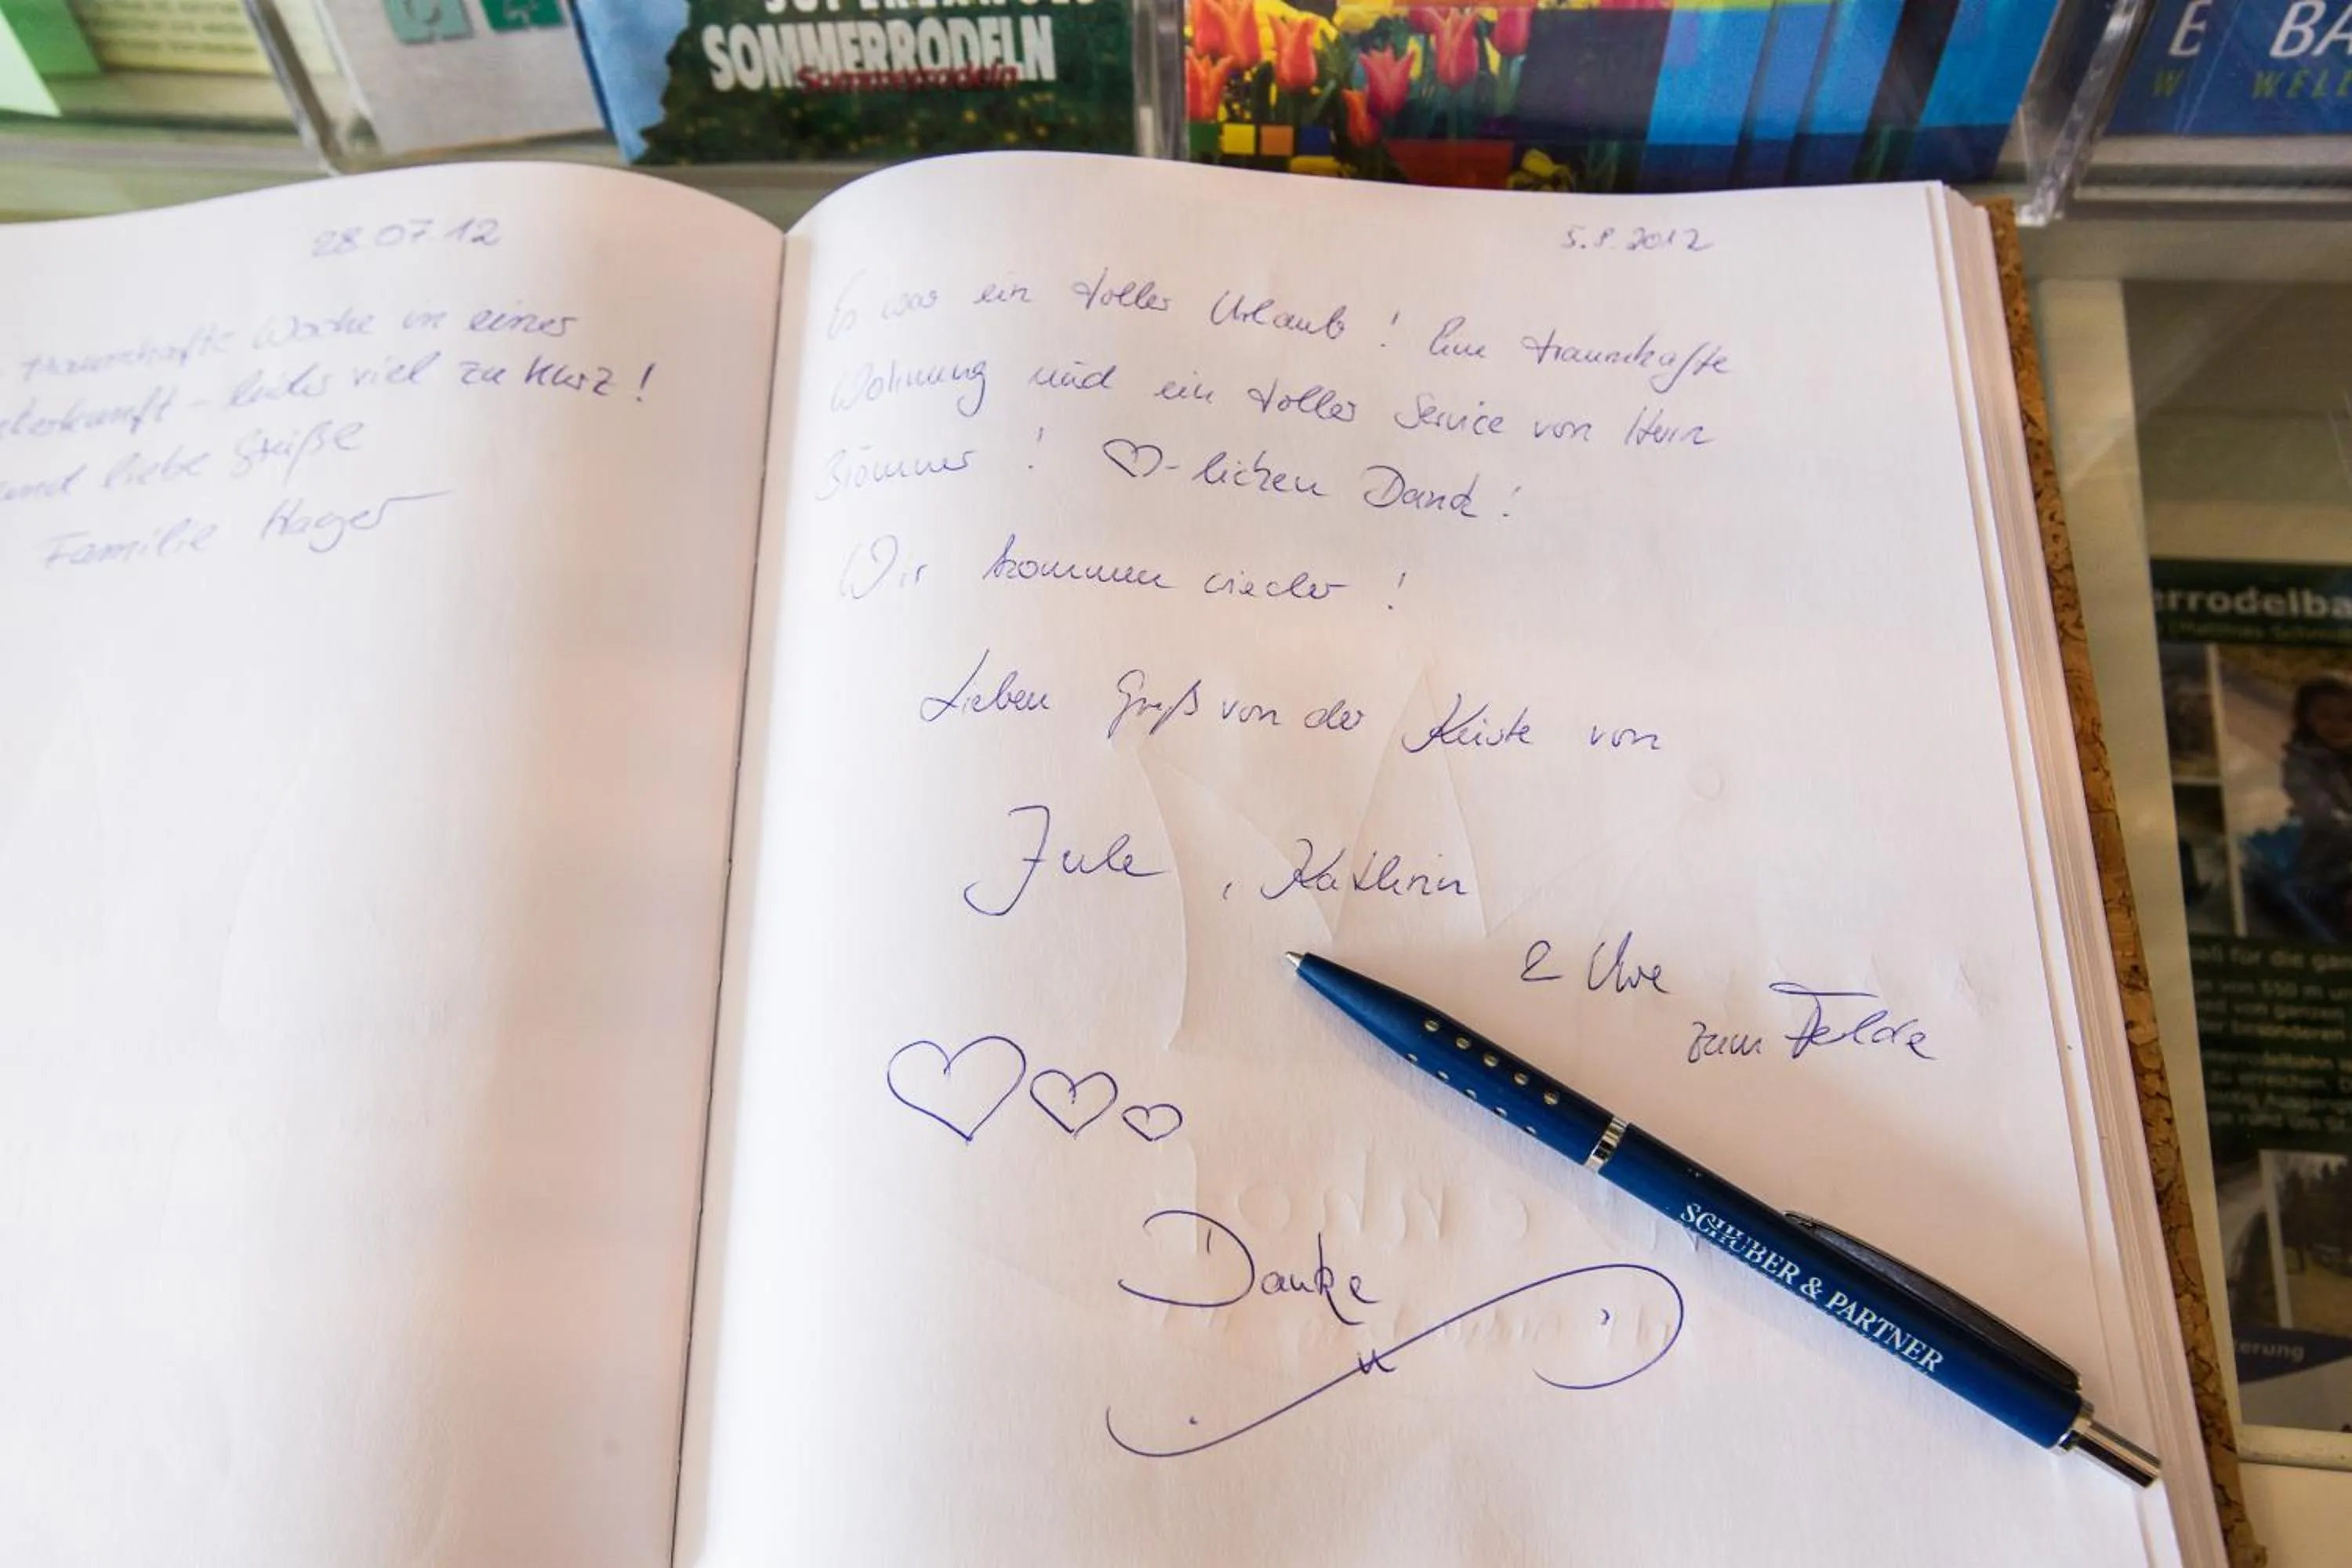 SOMMERRODELN
Sommerrodeln
BA
WELL
28.07.12
traumhafte Woche in einer
terkunft - leider viel zu kurz!
und liebe Grüße
Familie Hager
5.8.2012
Es war ein toller Urlaub! Eine traumhafte
Wohnung und ein toller Service von Herrn
Brömmer! ♡-lichen Dank!
Wir kommen wieder!
Lieben Gruß von der Küste von
Jule, Kathrin
& Uwe
zum Felde
Danke
SCHUBER & PARTNER
errodelba
ell für die ga
erung